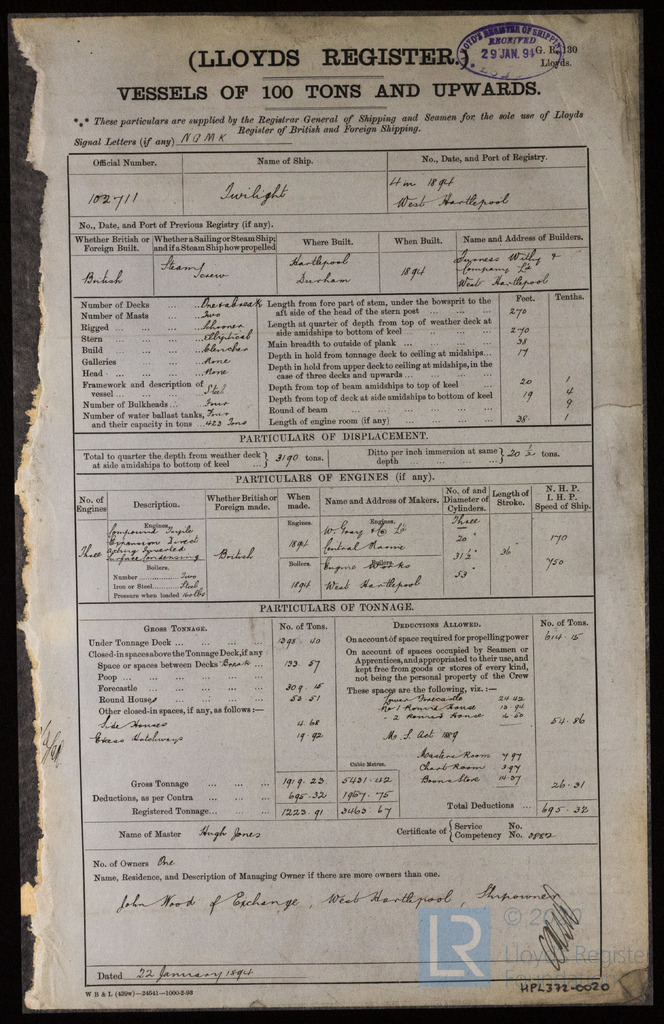 (LLOYDS REGISTER.)
LLOYD'S REGISTER OF SHIPPING
RECEIVED
29 JAN. 94
G. R. 130
Lloyds.
VESSELS OF 100 TONS AND UPWARDS.
*** These particulars are supplied by the Registrar General of Shipping and Seamen for the sole use of Lloyds
Register of British and Foreign Shipping.
Signal Letters (if any) N G M K
Official Number. Name of Ship. No., Date, and Port of Registry.
102711 Twilight 4 in 1894
West Hartlepool
No., Date, and Port of Previous Registry (if any).
Whether British or Foreign Built. Whether a Sailing or Steam Ship; and if a Steam Ship how propelled Where Built. When Built. Name and Address of Builders.
British Steam Screw Hartlepool Durham 1894 Furness Withy & Company Ld West Hartlepool
Number of Decks ... One & a break
Number of Masts ... Two
Rigged ... Schooner
Stern ... Elliptical
Build ... Clencher
Galleries ... None
Head ... None
Framework and description of vessel ... Steel
Number of Bulkheads ... Four
Number of water ballast tanks, and their capacity in tons Four 423 Tons
Feet. Tenths.
Length from fore part of stem, under the bowsprit to the aft side of the head of the stern post ... 270
Length at quarter of depth from top of weather deck at side amidships to bottom of keel ... 270
Main breadth to outside of plank ... 38
Depth in hold from tonnage deck to ceiling at midships ... 17
Depth in hold from upper deck to ceiling at midships, in the case of three decks and upwards ...
Depth from top of beam amidships to top of keel 20 1
Depth from top of deck at side amidships to bottom of keel 19 4
Round of beam ... 9
Length of engine room (if any) ... 38 1
PARTICULARS OF DISPLACEMENT.
Total to quarter the depth from weather deck at side amidships to bottom of keel ... 3190 tons. Ditto per inch immersion at same depth ... 20 ½ tons.
PARTICULARS OF ENGINES (if any).
No. of Engines Description. Whether British or Foreign made. When made. Name and Address of Makers. No. of and Diameter of Cylinders. Length of Stroke. N. H. P. I. H. P. Speed of Ship.
Three
Engines.
Compound Triple Expansion Direct Acting Inverted Surface Condensing
Boilers.
Number ... Two
Iron or Steel ... Steel
Pressure when loaded 160 lbs
British
Engines.
1894
Boilers.
1894
Engines.
W. Gray & Co Ld
Central Marine
Boilers.
Engine Works
West Hartlepool
Three
20"
31 ½"
53"
36"
170
750
PARTICULARS OF TONNAGE.
GROSS TONNAGE. No. of Tons.
Under Tonnage Deck ... 1395 40
Closed-in spaces above the Tonnage Deck, if any
Space or spaces between Decks Break ... 133 57
Poop ...
Forecastle ... 309 15
Round Houses ... 53 51
Other closed-in spaces, if any, as follows:—
Side Houses 4 68
Excess Hatchways 19 92
Cubic Metres.
Gross Tonnage ... 1919 23 5431 42
Deductions, as per Contra ... 695 32 1967 75
Registered Tonnage ... 1223 91 3463 67
DEDUCTIONS ALLOWED. No. of Tons.
On account of space required for propelling power 614 15
On account of spaces occupied by Seamen or Apprentices, and appropriated to their use, and kept free from goods or stores of every kind, not being the personal property of the Crew
These spaces are the following, viz.:—
Lower Forecastle 24 42
No 1 Round House 13 94
" 2 Round House 16 50
54 86
M. S. Act 1889
Masters Room 7 97
Chart Room 3 97
Boatns Store 14 37
26 31
Total Deductions ... 695 32
Name of Master Hugh Jones Certificate of { Service No.
Competency No. 0882
No. of Owners One
Name, Residence, and Description of Managing Owner if there are more owners than one.
John Wood of Exchange, West Hartlepool, Shipowner
Dated 22 January 1894
W B & L (439w)—24541—1000-2-93
LR
© 2020
Lloyd's Register
Foundation
HPL372-0020